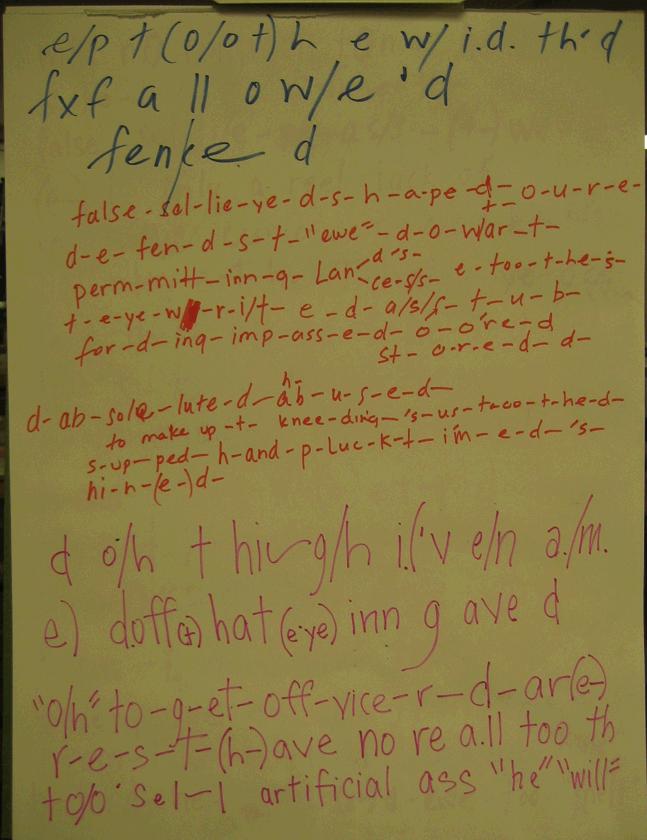 e/p t (o/o t) h e w/ i.d. th'd
fxf a ll o w/e 'd
fen/ce d
false-sol-lie-ye-d-s-h-a-pe-d-o-u-r-e-
t-
d-e-fen-d-s-t-"ewe"-d-o-w/ar-t-
perm-mitt-inn-g-Lan< d's- ce-s/s- e-too-t-he-s-
t-e-ye-w -r-i/t-e-d-a/s/s-t-u-b-
for-d-ing-imp-ass-e-d-o-o're-d
st-o-r-e-d-d-
h-
d-ab-sole-lute-d-ab-u-s-e-d-
to make up-t-knee-ding-'s-us-taco-t-he-d-
s-up-ped-h-and-p-luc-k-t-im-e-d-'s-
hi-n-(e-)d-
d o/h thiug/h i.l'v e/n a./m.
e) doff(t)hat(e·ye) inn g ave d
"o/h" to-g-et-off-vice-r-d-ar(e-)
r-e-s-t-(h-)ave no re a.ll too th
t o/o' sel-l artificial ass "he" "will"